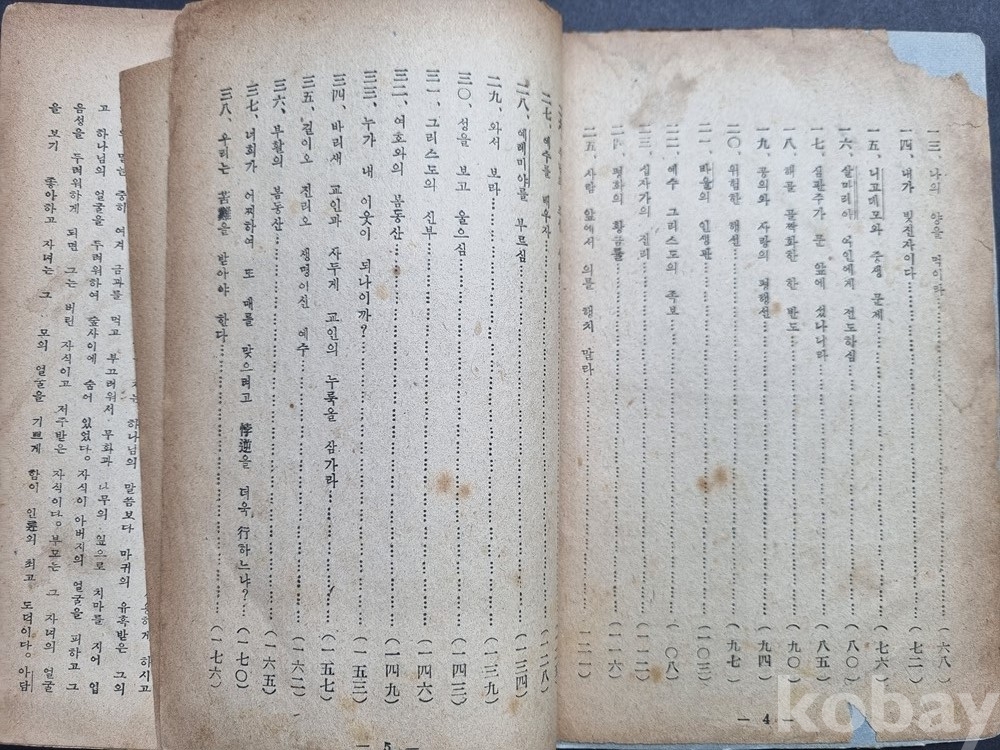 一三、나의 양을 먹이라……(六八)
一四、내가 빗진자이다……(七二)
一五、니고데모와 중생 문제……(七六)
一六、살마리아 여인에게 전도하심……(八〇)
一七、심판주가 문 앞에 섰나니라……(八五)
一八、한 반도……(九〇)
一九、공의와 사랑의 평행선……(九四)
二〇、위험한 행선……(九七)
二一、바울의 인생관……(一〇三)
二二、예수 그리스도의 족보……(一〇八)
二三、십자가의 진리……(一一二)
二四、평화의 황금률……(一一六)
二五、사람 앞에서 의를 행치 말라……(一二一)
— 4 —
二七、예수를 배우자……(一二八)
二八、예레미야를 부르심……(一三四)
二九、와서 보라……(一三九)
三〇、성을 보고 울으심……(一四三)
三一、그리스도의 신부……(一四六)
三二、여호와의 봄동산……(一四九)
三三、누가 내 이웃이 되나이까?……(一五三)
三四、바리새 교인과 사두게 교인의 누룩을 삼가라……(一五七)
三五、길이오 진리오 생명이신 예수……(一六二)
三六、부활의 봄동산……(一六五)
三七、너희가 어찌하여 또 매를 맞으려고 悖逆을 더욱 行하느냐?……(一七〇)
三八、우리는 苦難을 받아야 한다……(一七六)
— 5 —
하게 하시고
하나님의 말씀보다 마귀의 유혹받은 그의
말은 중히 여겨 금과를 먹고 부끄러워서 무화과 나무의 잎으로 치마를 지어 입
고 하나님의 얼굴을 두려워하여 숲사이에 숨어 있었다。자식이 아버지의 얼굴을 피하고 그
음성을 두려워하게 되면 그는 버린 자식이고 저주받은 자식이다。부모는 그 자녀의 얼굴
을 보기 좋아하고 자녀는 그 부모의 얼굴을 기쁘게 함이 인륜의 최고 도덕이다。아담
kobay